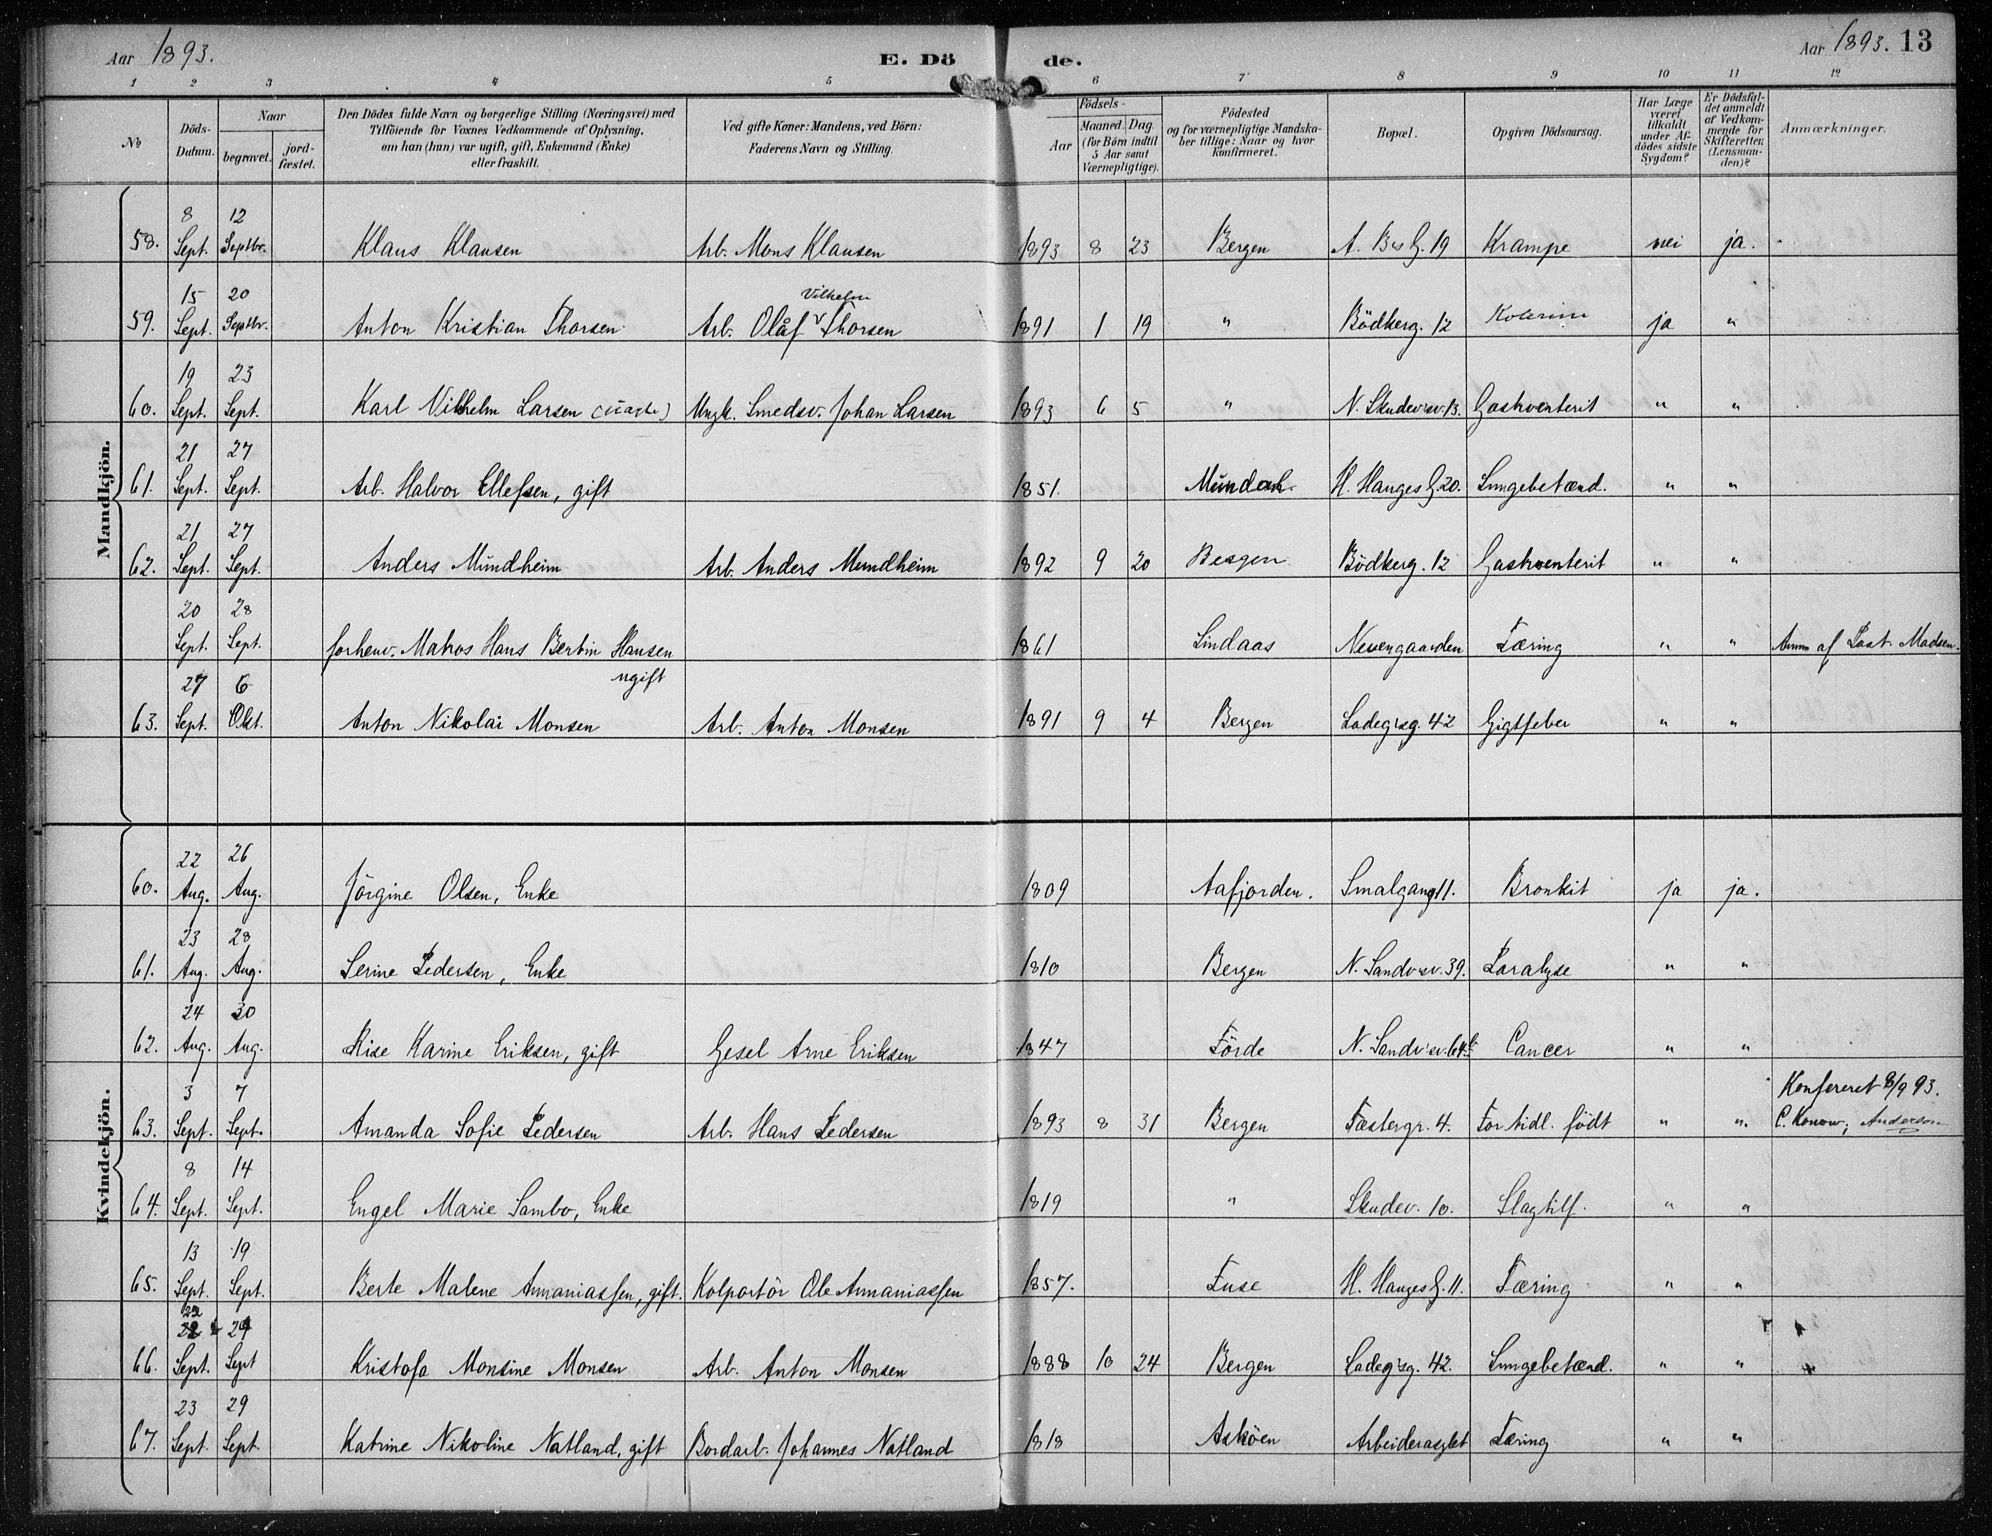 Aar 1893. E. Dö de. Aar 1893. 13
1 2 3 4 5 6 7 8 9 10 11 12
No Döds-Datum. Naar begravet. jord-fæstet. Den Dödes fulde Navn og borgerlige Stilling (Næringsvei) med Tilföiende for Voxnes Vedkommende af Oplysning, om han (hun) var ugift, gift, Enkemand (Enke) eller fraskilt. Ved gifte Koner: Mandens, ved Börn: Faderens Navn og Stilling. Födsels- Aar Maaned. Dag. (for Börn indtil 5 Aar samt Værnepligtige). Födested og for værnepligtige Mandskaber tillige: Naar og hvor konfirmeret. Bopæl. Opgiven Dödsaarsag. Har Læge været tilkaldt under Afdödes sidste Sygdom? Er Dödsfaldet anmeldt af Vedkommende for Skifteretten (Lensmanden)? Anmærkninger.
Mandkjön.
58. 8 Sept. 12 Septbr. Klaus Klausen Arb. Mons Klausen 1893 8 23 Bergen A. Bus G. 19 Krampe nei ja.
59. 15 Sept. 20 Septbr. Anton Kristian Thorsen Arb. Olåf Vilhelm Thorsen 1891 1 19 " Bödkerg. 12 Kolerine ja "
60. 19 Sept. 23 Sept. Karl Vilhelm Larsen (uægte) Ungk. Smedsv. Johan Larsen 1893 6 5 " N. Skudevsv. 13. Gastroenterit " "
61. 21 Sept. 27 Sept. Arb. Halvor Ellefsen, gift 1851. H. Hauges G. 20. Lungebetænd. " "
62. 21 Sept. 27 Sept. Anders Mundheim Arb. Anders Mundheim 1892 9 20 Bergen Bödkerg. 12 Gastroenterit " "
20 Sept. 28 Sept. forhenv. Matros Hans Bertin Hansen ugift 1861 Lindaas Nevengaarden Tæring " " Anm af Past. Madsen.
63. 27 Sept. 6 Okt. Anton Nikolai Monsen Arb. Anton Monsen 1891 9 4 Bergen Ladegsg. 42 Gigtfeber " "
Kvindekjön.
60. 22 Aug. 26 Aug. Jörgine Olsen, Enke 1809 Aafjorden. Smalgang 11. Bronkit ja ja.
61. 23 Aug. 28 Aug. Serine Pedersen, Enke 1810 Bergen N. Sandvsv. 39. Paralyse " "
62. 24 Aug. 30 Aug. Lise Karine Eriksen, gift Gesel Arne Eriksen 1847 Förde N. Sandvsv. 64b Cancer " "
63. 3 Sept. 7 Sept. Amanda Sofie Pedersen Arb. Hans Pedersen 1893 8 31 Bergen Fæstergr. 4. For tidl. födt " " Konfereret 8/9 93. C. Konow; Anderson
64. 8 Sept. 14 Sept. Engel Marie Sambo, Enke 1819 " Skudev. 10. Slagtilf. " "
65. 13 Sept. 19 Sept. Berte Malene Annaniassen, gift. Kolportör Ole Annaniassen 1857. Fuse H. Hauges G. 11. Tæring " "
66. 22 Sept. 29 Sept Kristofa Monsine Monsen Arb. Anton Monsen 1888 10 24 Bergen Ladegsg. 42. Lungebetænd. " "
67. 23 Sept. 29 Sept. Katrine Nikoline Natland, gift Bordarb. Johannes Natland 1818 Asköen Arbeiderasylet Tæring " "